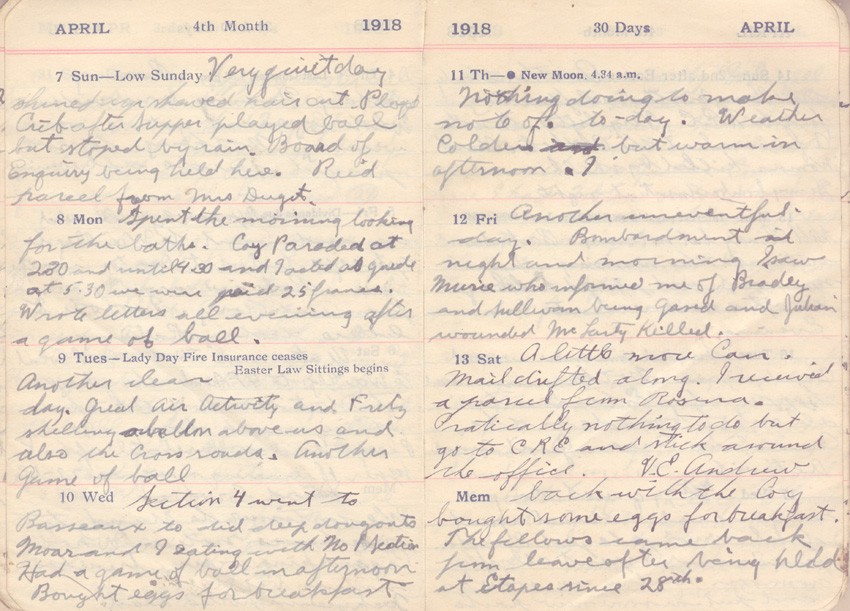 APRIL 4th Month 1918
7 Sun—Low Sunday Very quiet day
shined up shaved hair cut. Played
Crib after supper played ball
but stoped by rain. Board of
Enquiry being held here. Rec'd
parcel from Mrs
8 Mon Spent the morning looking
for the baths. Coy Paraded at
2.30 and until 4.30 and I acted as guide
at 5.30 we were paid 25 francs.
Wrote letters all evening after
a game of ball.
9 Tues—Lady Day Fire Insurance ceases
Easter Law Sittings begins
Another clear
day. Great Air Activity and
shelling above us and
also the Cross roads. Another
Game of ball
10 Wed Section 4 went to
to deep dougouts
Moar and I eating with No 1 Section
Had a game of ball in afternoon
Bought eggs for breakfast
1918 30 Days APRIL
11 Th—● New Moon, 4.34 a.m.
Nothing doing to make
note of. to-day. Weather
Colder but warm in
afternoon.
12 Fri Another uneventful
day. Bombardment at
night and morning Saw
who informed me of Bradley
and Sullivan being gased and
wounded McCarty Killed.
13 Sat A little more Can.
Mail drifted along. I received
a parcel from Rosena.
Pratically nothing to do but
go to C R E and stick around
the office. V.E. Andrew
Mem back with the Coy
bought some eggs for breakfast.
The fellows came back
from leave after being held
at Etapes since 28th.